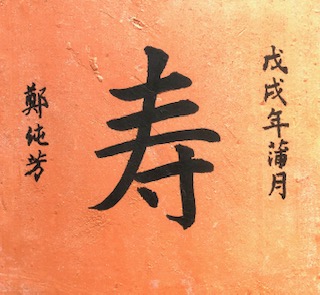 戊戌年蒲月
寿
鄭纯芳